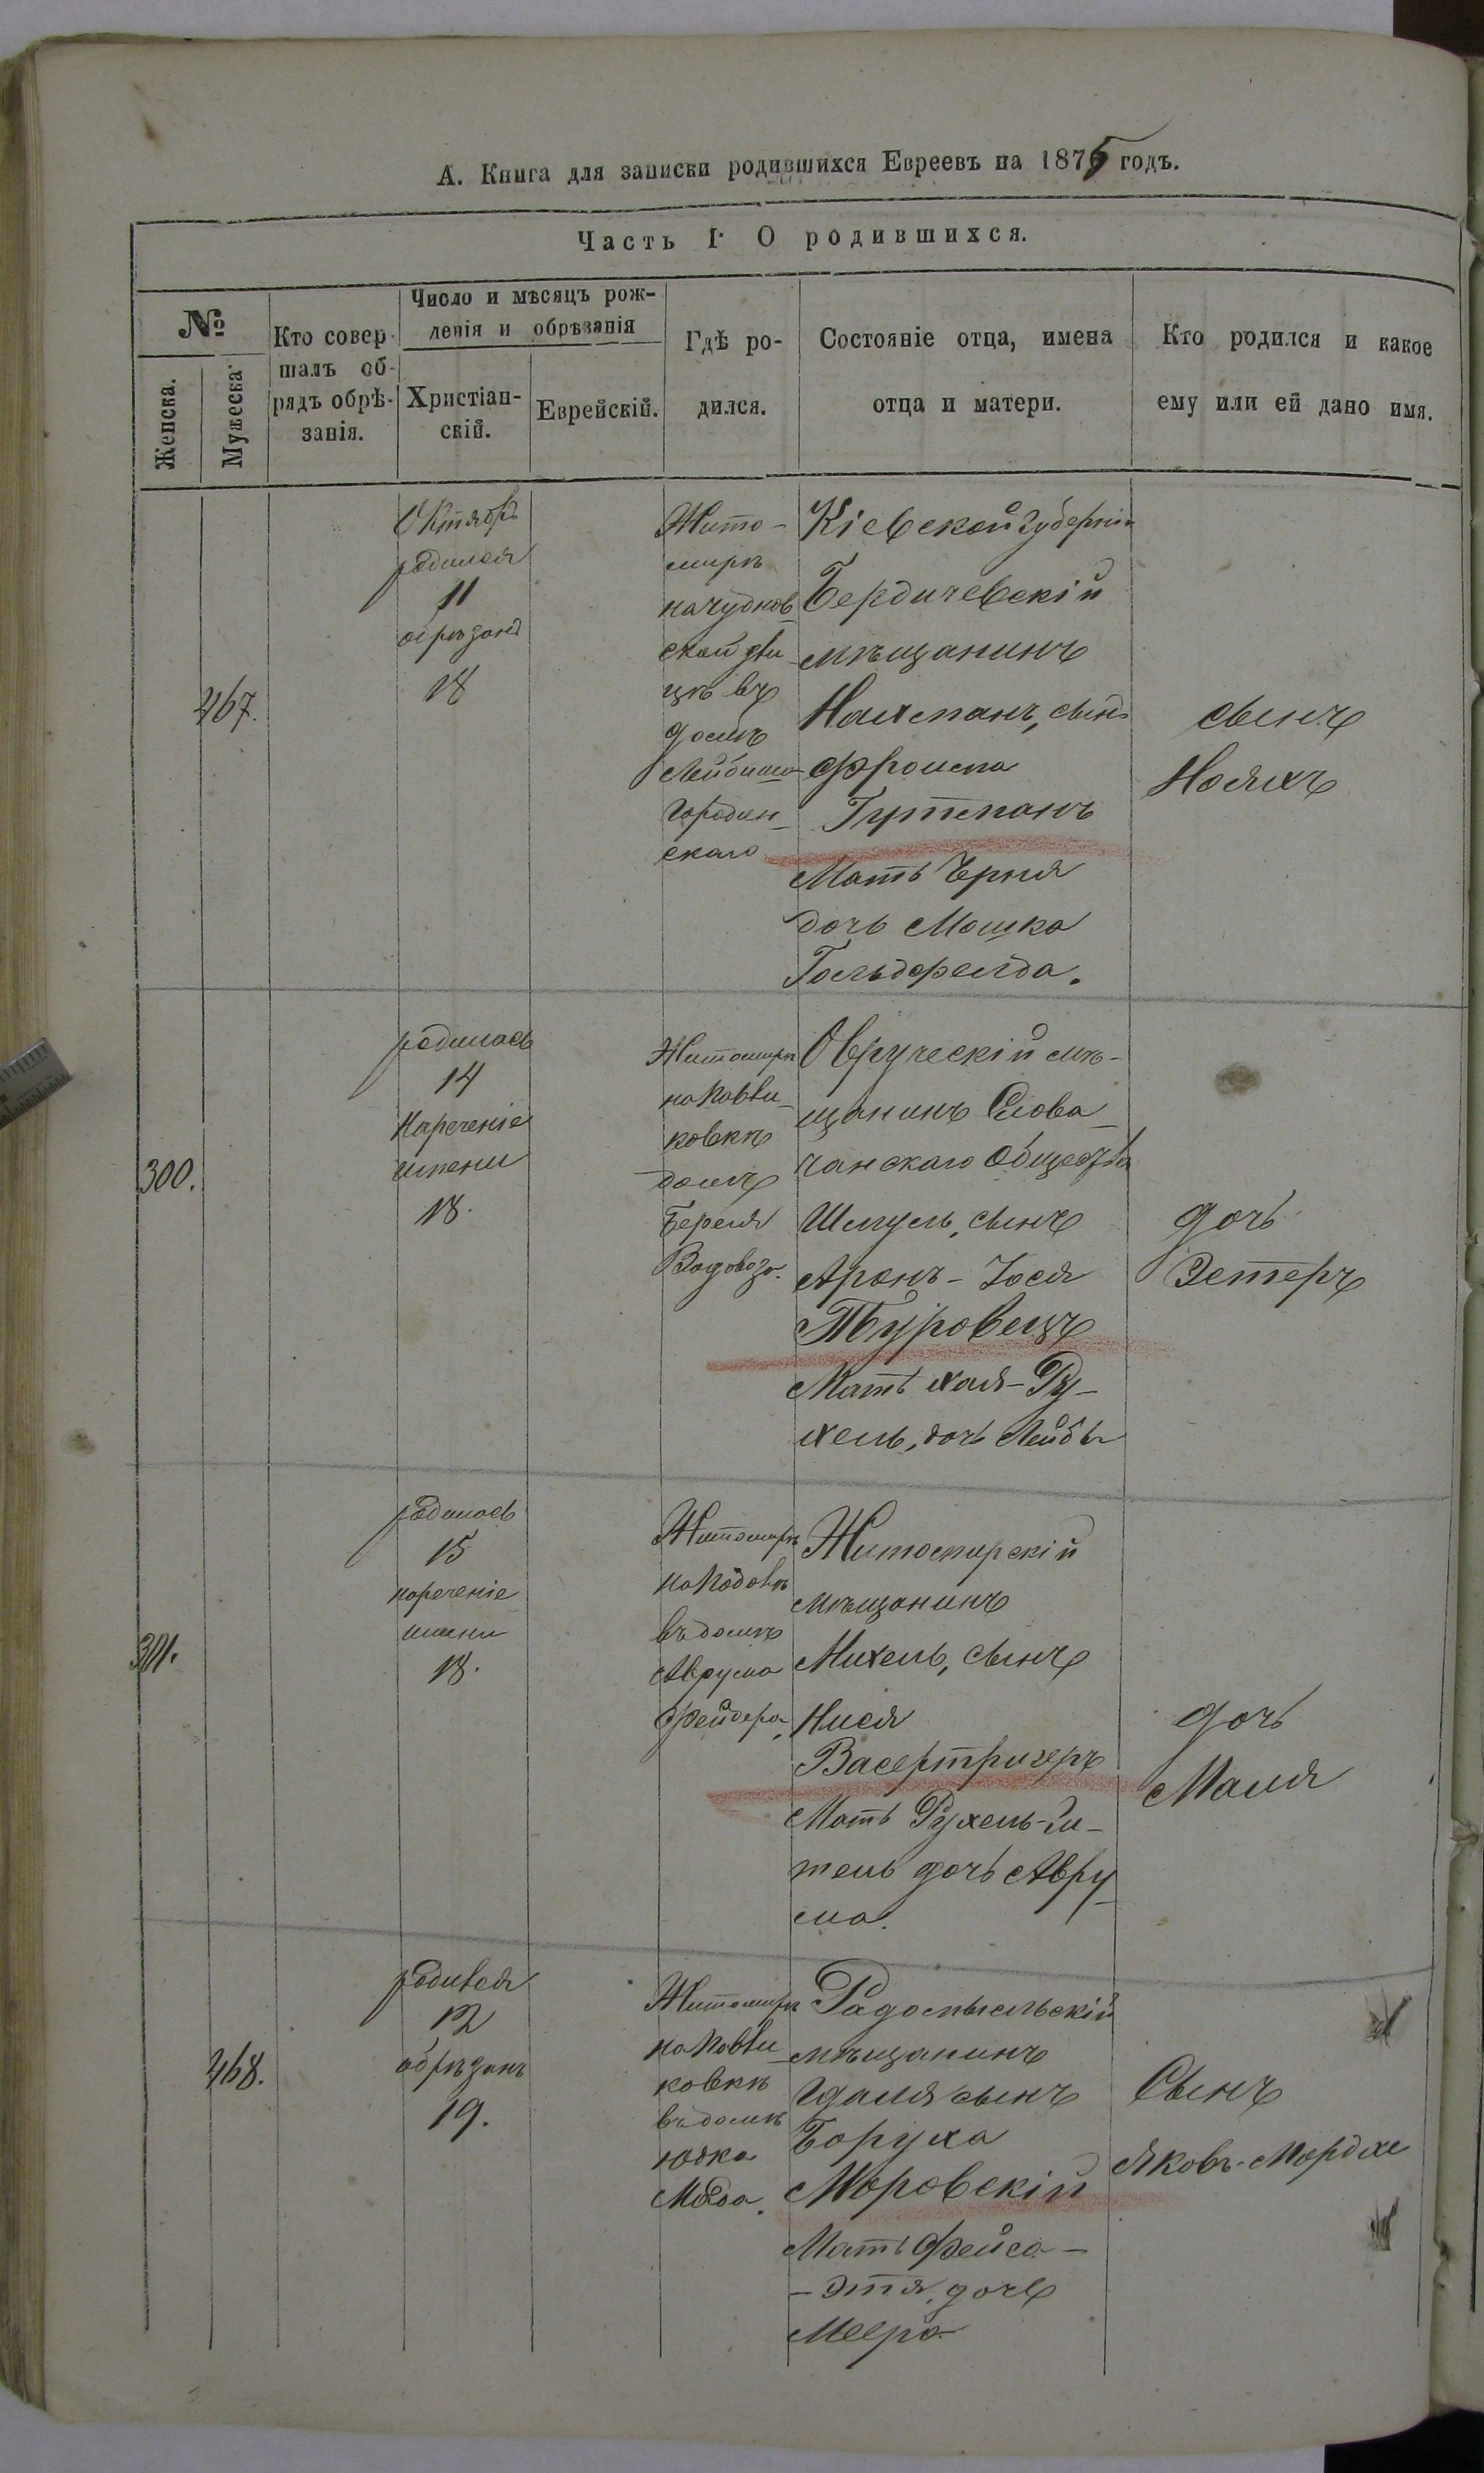 А. Книга для записки родившихся Евреевъ на 1875 годъ.
Часть I. О родившихся.
№
Женска.
Мужеска
Кто совер-
шалъ об-
рядъ обрѣ-
занія.
Число и мѣсяцъ рож-
денія и обрѣзанія
Христіан-
скій.
Еврейскій.
Гдѣ ро-
дился.
Состояніе отца, имена
отца и матери.
Кто родился и какое
ему или ей дано имя.
467.
Октябрь
родился
11
обрѣзанъ
18
Жито-
мирѣ
на чуднов-
ской ули
цѣ въ
домѣ
Лейбиша
Городин-
скаго
Кіевской губерніи
Бердичевскій
мѣщанинъ
Нахманъ, сынъ
Фроима
Гутманъ
Мать Черня
дочь Мошка
Гольдфельда.
сынъ
Нояхъ
300.
родилась
14
Нареченіе
имени
18.
Житомирѣ
на Павли-
ковкѣ
домъ
Береля
Водовоза.
Овруческій мѣ-
щанинъ Слова-
чанскаго общества
Шмуль, сынъ
Аронъ-Іося
Туровецъ
Мать Хая-Ру-
хель, дочь Лейбы
дочь
Эстеръ
301.
родилась
15
нареченіе
имени
18.
Житомирѣ
на
въ домѣ
Аврума
Фейдера,
Житомирскій
мѣщанинъ
Михель, сынъ
Нися
Васертригеръ
Мать Рухель-Ги-
тель дочь Авру-
ма.
дочь
Маля
468.
родился
12
обрѣзанъ
19.
Житомирѣ
на Павли-
ковкѣ
въ домѣ
Юдка
Радомысльскій
мѣщанинъ
Гдаля сынъ
Боруха
Моровскій
Мать Фейга-
-Этя, дочь
Меера
Сынъ
Яковъ-Мордхе